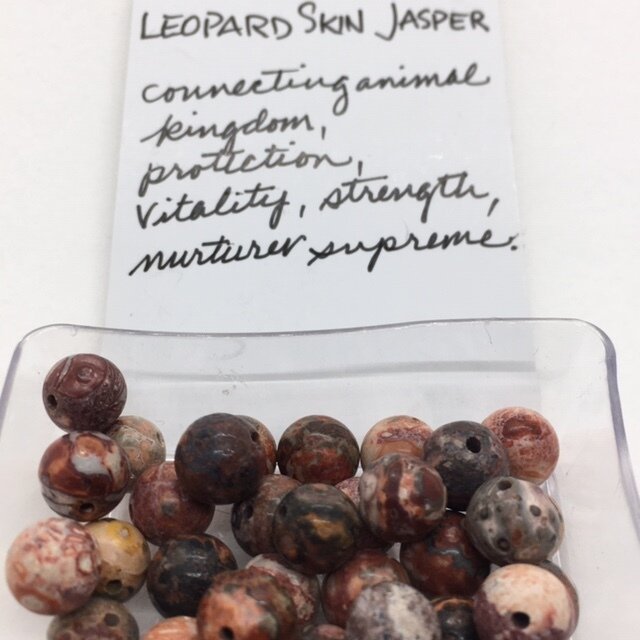 LEOPARD SKIN JASPER
connecting animal
kingdom,
protection,
Vitality, strength,
nurturer supreme.